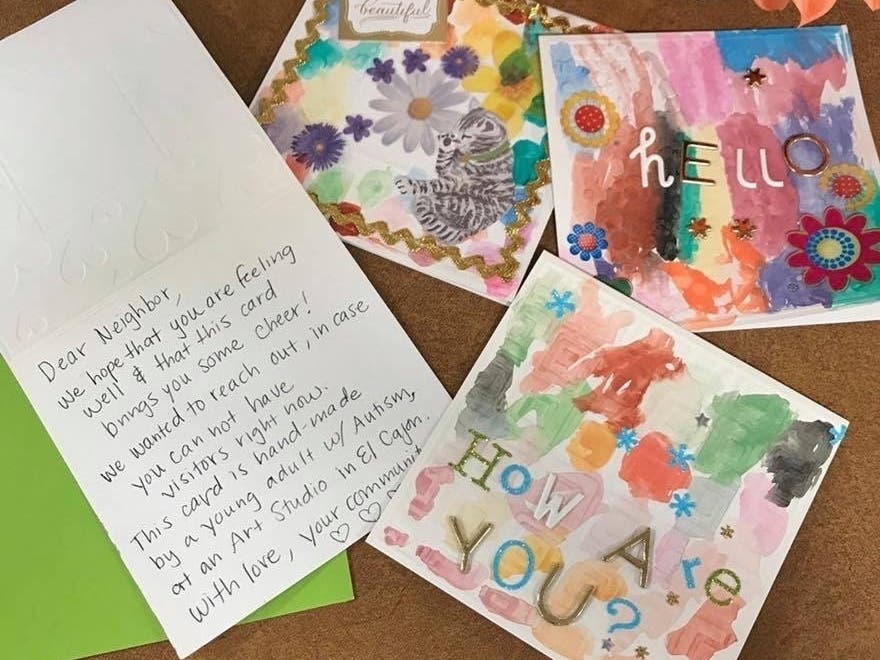 Dear Neighbor,
We hope that you are feeling
well & that this card
brings you some cheer!
We wanted to reach out, in case
you can not have
visitors right now.
This card is hand-made
by a young adult w/ Autism,
at an Art Studio in El Cajon.
With love, your communit
beautiful
hELLO
How
YOU Are
?